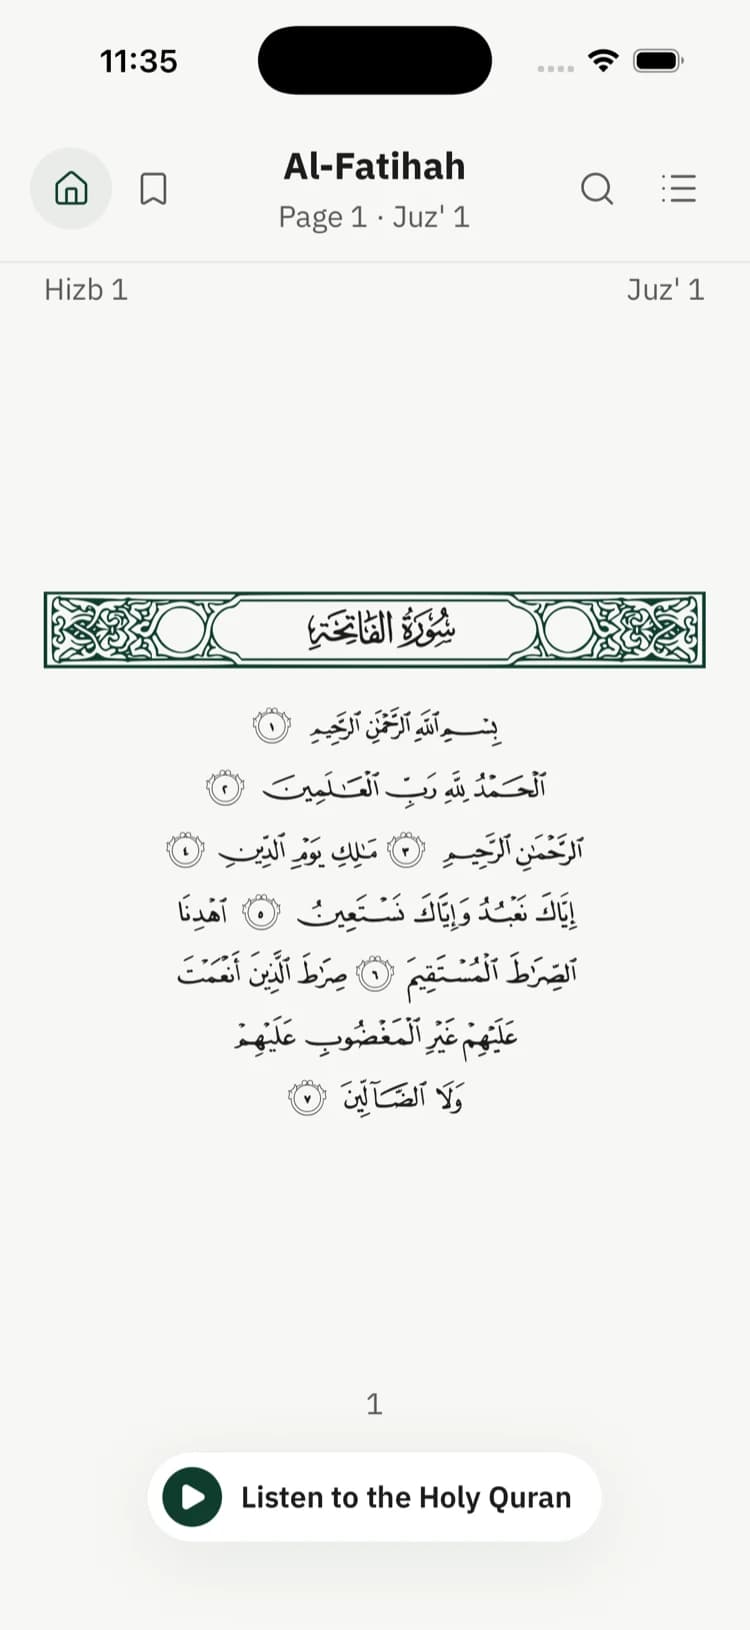 11:35
Al-Fatihah
Page 1 · Juz' 1
Hizb 1
Juz' 1
سُورَةُ الفَاتِحَةِ
بِسْمِ ٱللَّهِ ٱلرَّحْمَٰنِ ٱلرَّحِيمِ ١
ٱلْحَمْدُ لِلَّهِ رَبِّ ٱلْعَٰلَمِينَ ٢
ٱلرَّحْمَٰنِ ٱلرَّحِيمِ ٣ مَٰلِكِ يَوْمِ ٱلدِّينِ ٤
إِيَّاكَ نَعْبُدُ وَإِيَّاكَ نَسْتَعِينُ ٥ ٱهْدِنَا
ٱلصِّرَٰطَ ٱلْمُسْتَقِيمَ ٦ صِرَٰطَ ٱلَّذِينَ أَنْعَمْتَ
عَلَيْهِمْ غَيْرِ ٱلْمَغْضُوبِ عَلَيْهِمْ
وَلَا ٱلضَّآلِّينَ ٧
1
Listen to the Holy Quran